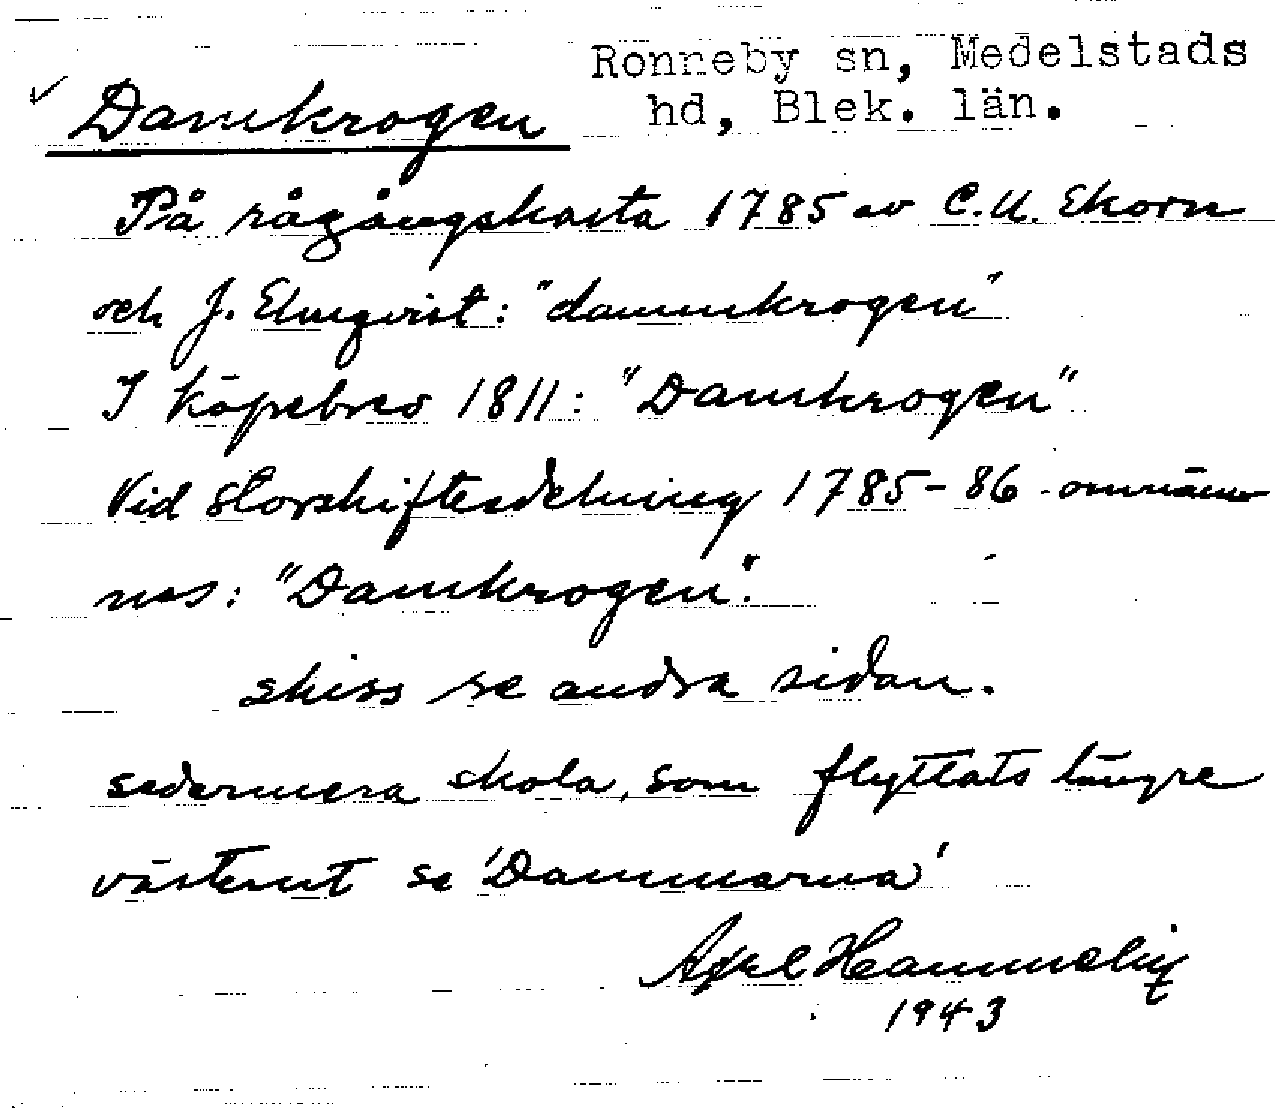 Ronneby sn, Medelstads
hd, Blek. län.
Damkrogen
På rågångskarta 1785 av C.U. Ekorn
och J. Elmqvist: "dammkrogen"
I köpebrev 1811: "Damkrogen"
Vid storskiftesdelning 1785-86 omnäm-
nes: "Damkrogen".
skiss se andra sidan.
sedermera skola, som flyttats längre
västerut se 'Dammarna'
Axel Hammelin
1943